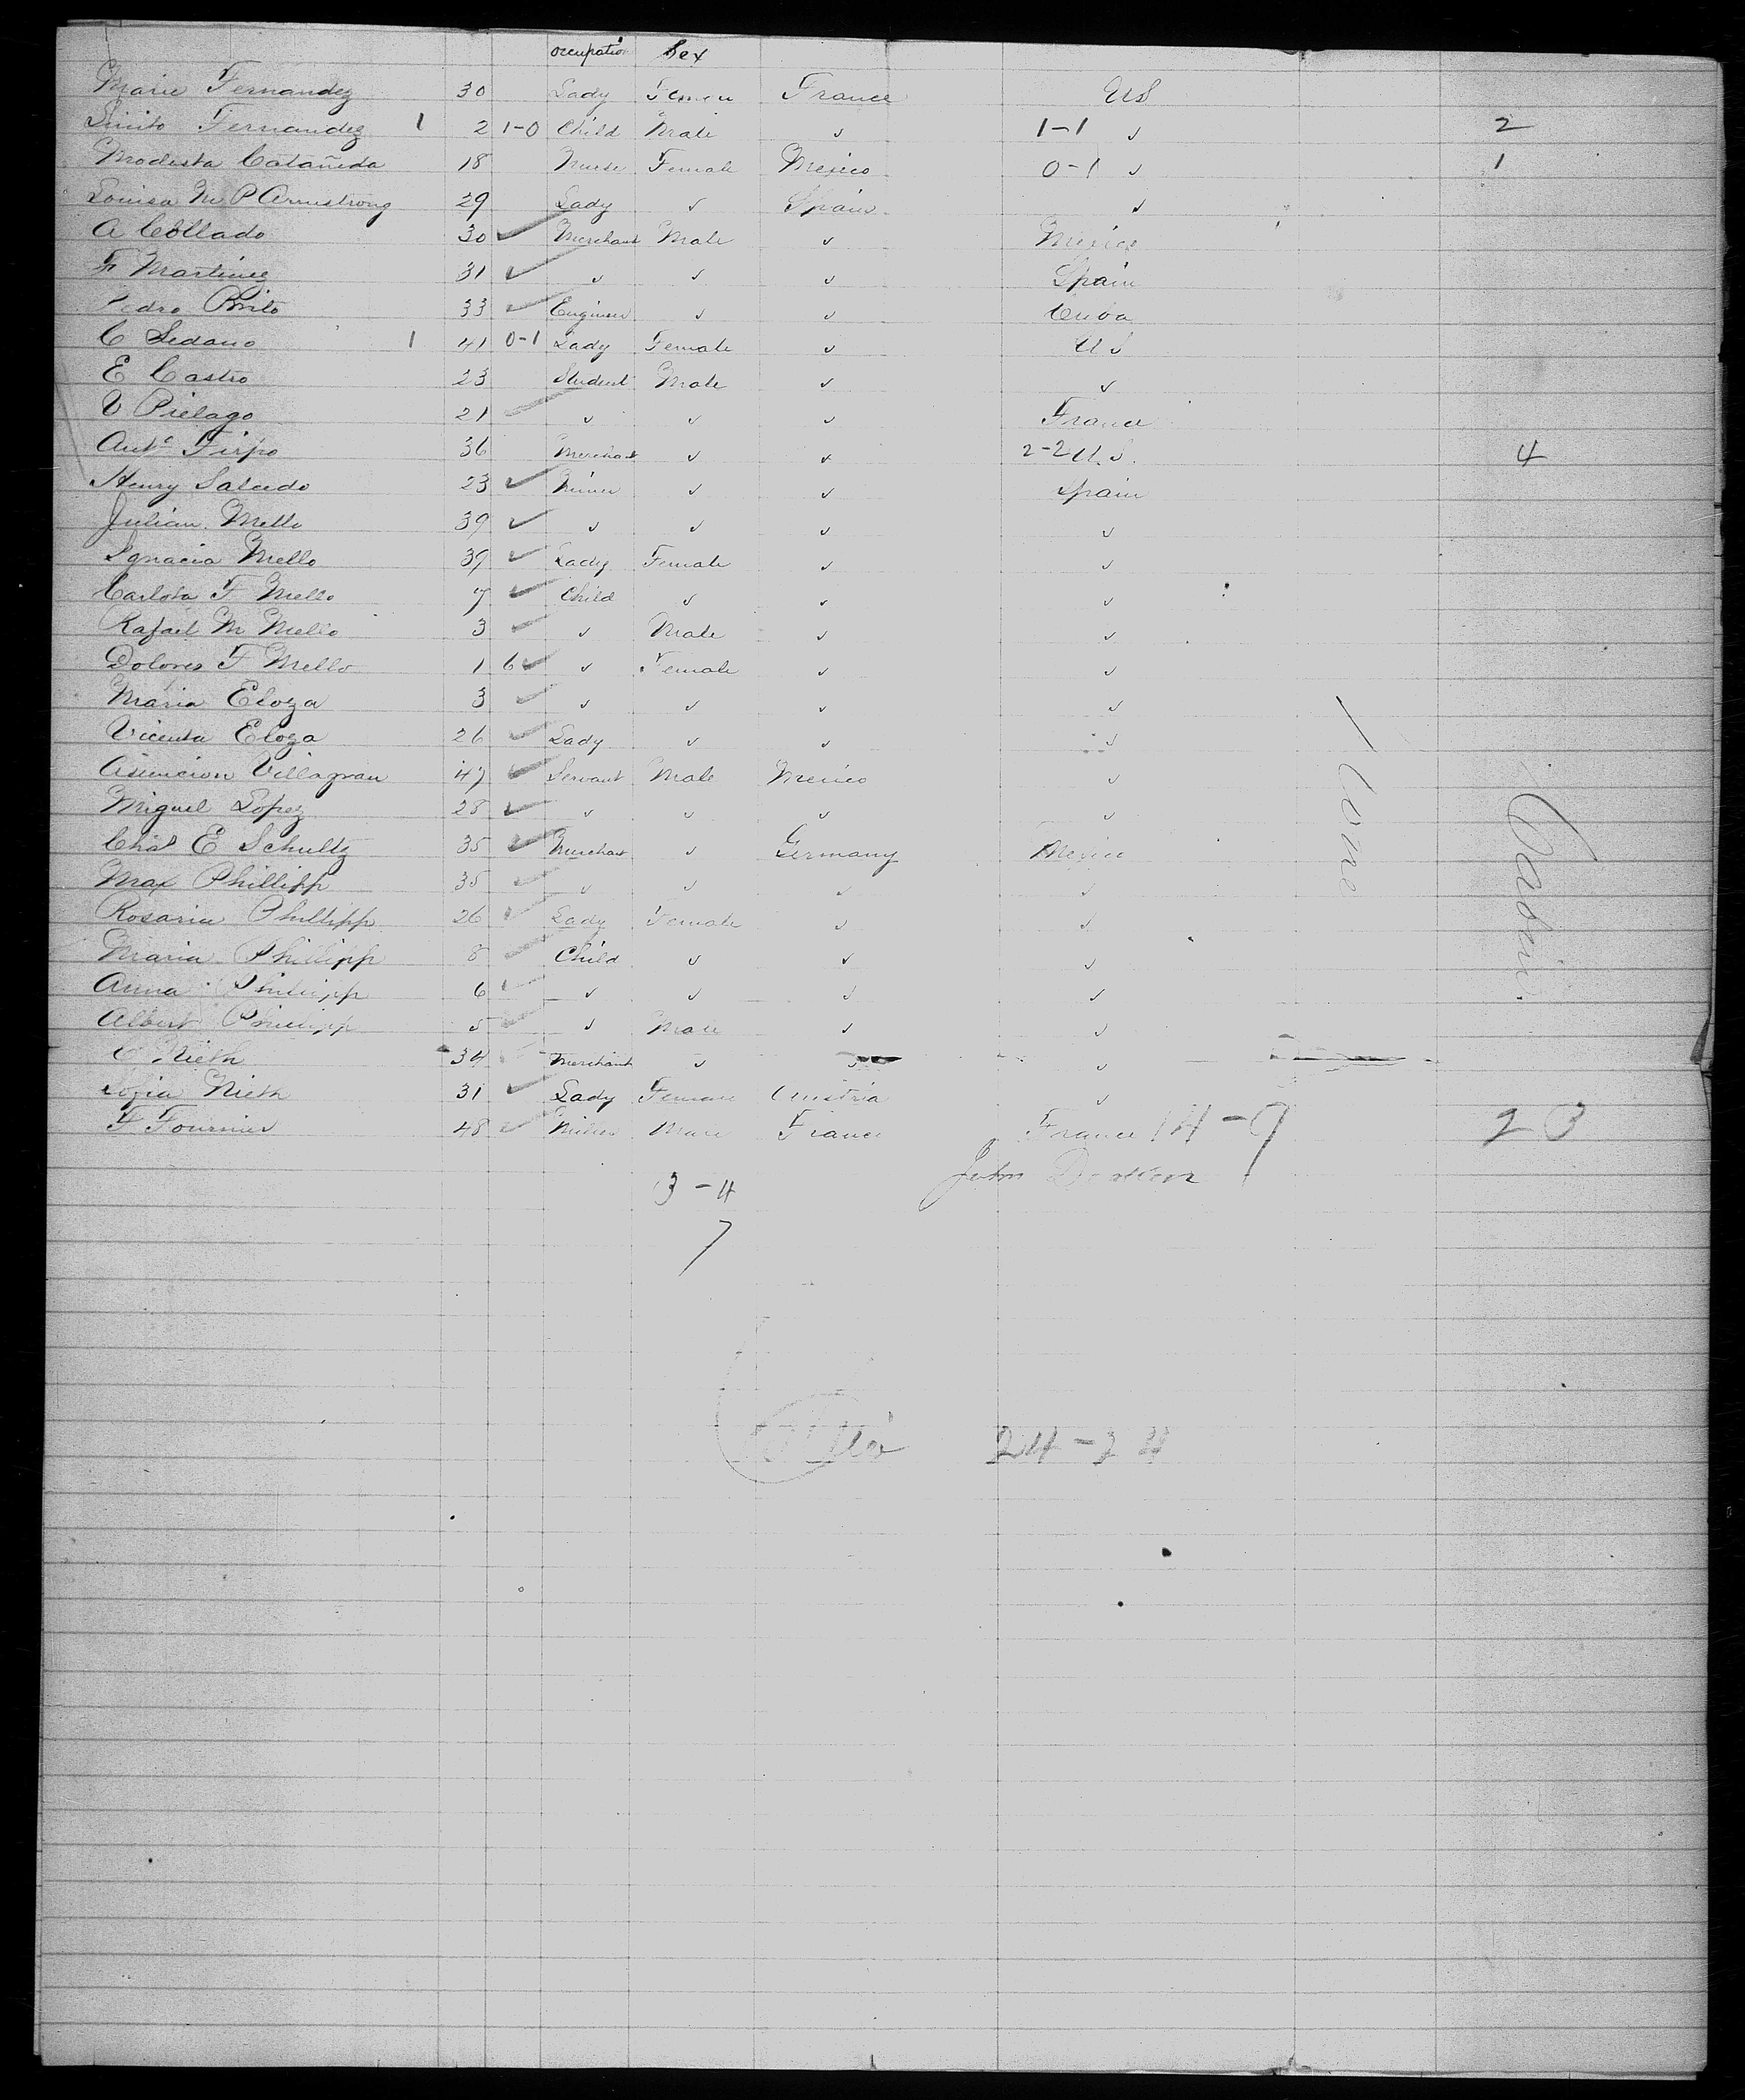 occupation Sex
Marie Fernandez 30 Lady France US
Fernandez 1 2 1-0 Child Male ✓ 1-1 ✓ 2
Modesta Catañeda 18 Nurse Female Mexico 0-1 ✓ 1
Louisa M P Armstrong 29 Lady ✓ Spain ✓
A Collado 30 ✓ Merchant Male ✓ Mexico
F Martinez 31 ✓ ✓ ✓ ✓ Spain
Pedro Brito 33 ✓ Engineer ✓ ✓ Cuba
C Sedano 1 41 0-1 Lady Female ✓ U S
E Castro 23 Student Male ✓ ✓
V Pielago 21 ✓ ✓ ✓ ✓ France
Antº Firpo 36 Merchant ✓ ✓ 2-2 U.S. 4
Henry Salcedo 23 ✓ Miner ✓ ✓ Spain
Julian Mello 39 ✓ ✓ ✓ ✓ ✓
Ignacia Mello 39 ✓ Lady Female ✓ ✓
Carlota F Mello 7 ✓ Child ✓ ✓ ✓
Rafael M Mello 3 ✓ ✓ Male ✓ ✓
Dolores F Mello 1 6 ✓ ✓ Female ✓ ✓
Maria Eloza 3 ✓ ✓ ✓ ✓ ✓
Vicenta Eloza 26 ✓ Lady ✓ ✓ ✓
Asuncion Villagran 47 ✓ Servant Male Mexico ✓
Miguel Lopez 28 ✓ ✓ ✓ ✓ ✓
Chas E Schultz 35 ✓ Merchant ✓ Germany Mexico
Max Phillipp 35 ✓ ✓ ✓ ✓ ✓
Rosaria Phillipp 26 ✓ Lady Female ✓ ✓
Maria Phillipp 8 ✓ Child ✓ ✓ ✓
Anna Phillipp 6 ✓ ✓ ✓ ✓ ✓
Albert Phillipp 5 ✓ ✓ Male ✓ ✓
C Nieth 34 Merchant ✓ ✓ ✓
Sofia Nieth 31 ✓ Lady Female Austria ✓
F Fournier 48 ✓ Male France France 14-9 23
John
3-4
7
24-24
Cabin